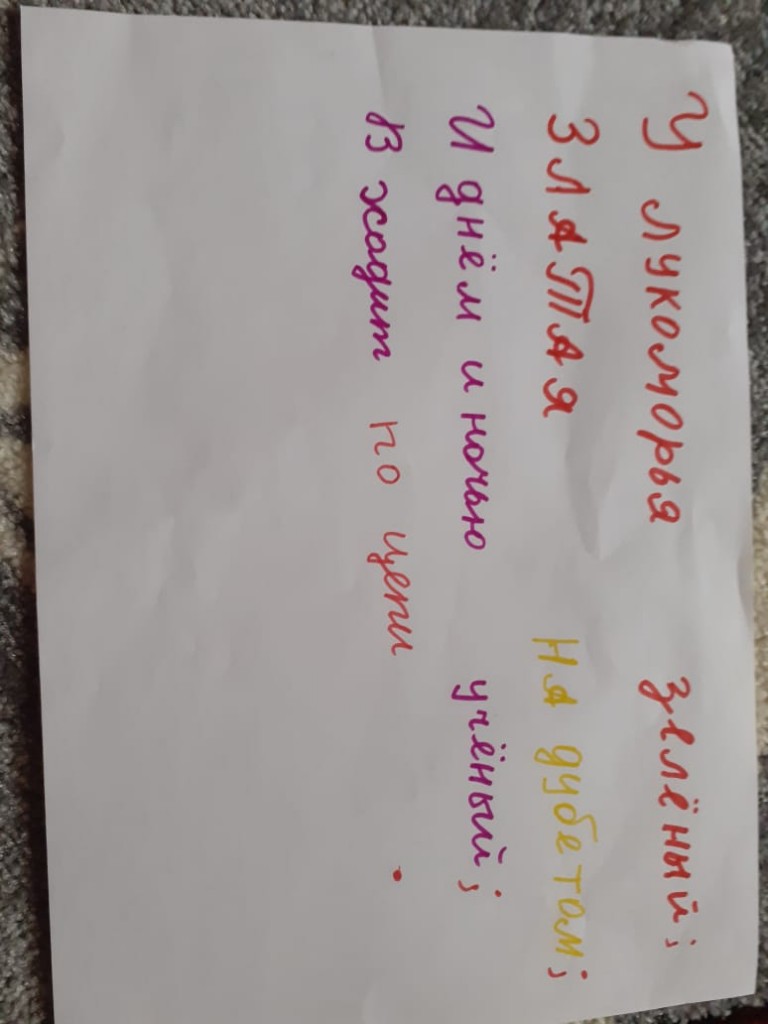 У лукоморья зелёный;
ЗЛАТАЯ НА дубе том;
И днём и ночью учёный;
В ходит по цепи .